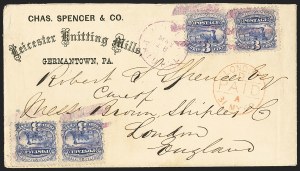 CHAS. SPENCER & CO.
Leicester Knitting Mills,
GERMANTOWN, PA.
Robert S. Spencer Esq
Care of
Mess Brown Shipley & Co
London
England
PAID
POSTAGE
3
POSTAGE
3
POSTAGE
3
POSTAGE
3